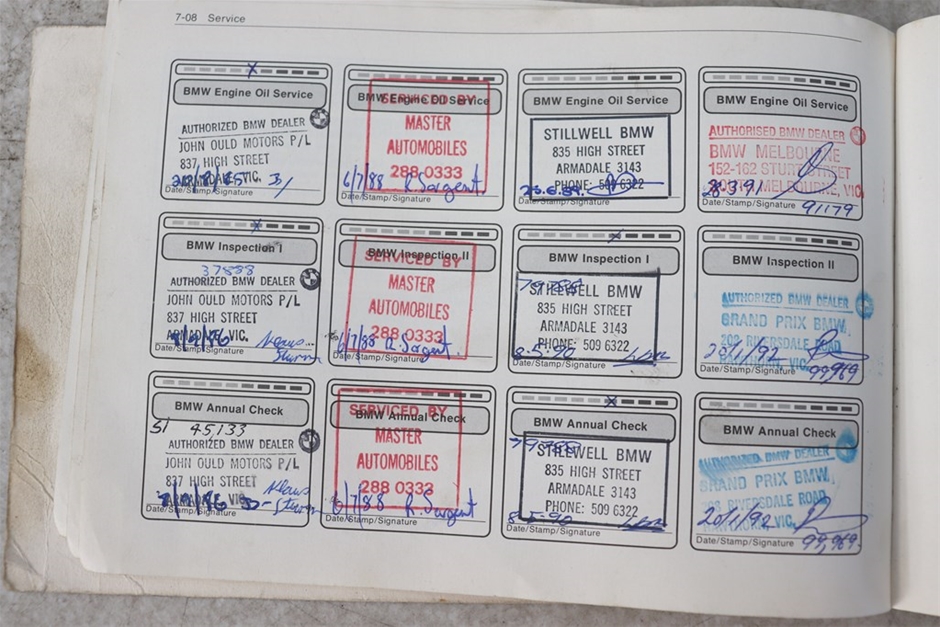 7-08 Service
BMW Engine Oil Service
AUTHORIZED BMW DEALER
JOHN OULD MOTORS P/L
837, HIGH STREET
ARMADALE, VIC.
Date/Stamp/Signature
BMW Engine Oil Service
SERVICED BY
MASTER
AUTOMOBILES
288 0333
6/7/88 R. Sargent.
Date/Stamp/Signature
BMW Engine Oil Service
STILLWELL BMW
835 HIGH STREET
ARMADALE 3143
PHONE: 509 6322
Date/Stamp/Signature
BMW Engine Oil Service
AUTHORISED BMW DEALER
BMW MELBOURNE
152-162 STURT STREET
MELBOURNE, VIC
28.3.91
Date/Stamp/Signature
91179
BMW Inspection I
37888
AUTHORIZED BMW DEALER
JOHN OULD MOTORS P/L
837 HIGH STREET
ARMADALE, VIC.
Date/Stamp/Signature
BMW Inspection II
SERVICED BY
MASTER
AUTOMOBILES
288 0333
6/7/88 R. Sargent.
Date/Stamp/Signature
BMW Inspection I
STILLWELL BMW
835 HIGH STREET
ARMADALE 3143
PHONE: 509 6322
8.5.90
Date/Stamp/Signature
BMW Inspection II
AUTHORIZED BMW DEALER
GRAND PRIX BMW,
RIVERSDALE ROAD
VIC.
20/1/92
Date/Stamp/Signature
99,969
BMW Annual Check
45,133
AUTHORIZED BMW DEALER
JOHN OULD MOTORS P/L
837 HIGH STREET
ARMADALE, VIC.
Date/Stamp/Signature
BMW Annual Check
SERVICED BY
MASTER
AUTOMOBILES
288 0333
6/7/88 R. Sargent
Date/Stamp/Signature
BMW Annual Check
STILLWELL BMW
835 HIGH STREET
ARMADALE 3143
PHONE: 509 6322
8.5.90
Date/Stamp/Signature
BMW Annual Check
AUTHORIZED BMW DEALER
GRAND PRIX BMW,
RIVERSDALE ROAD
VIC.
20/1/92
Date/Stamp/Signature
99,969.